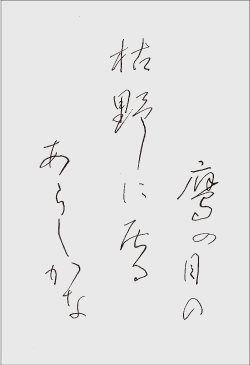 鷹の目の
枯野に居る
あらしかな